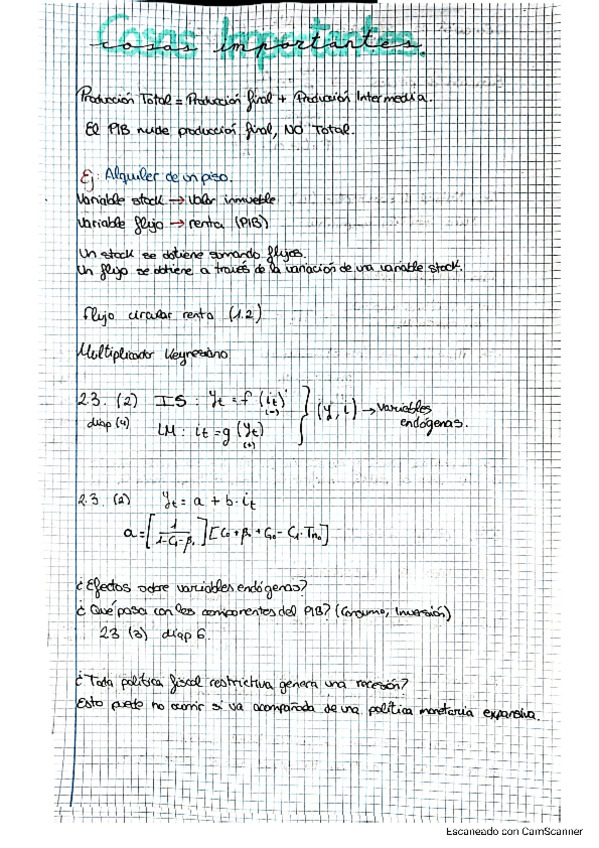 Cosas Importantes.
cosas importantes.
Producción Total = Producción final + Producción Intermedia.
El PIB mide producción final, NO Total.
Ej: Alquiler de un piso.
Variable stock → valor inmueble
Variable flujo → renta (PIB)
Un stock se obtiene sumando flujos.
Un flujo se obtiene a través de la variación de una variable stock.
flujo circular renta (1.2)
Multiplicador Keynesiano
2.3. (2) IS: Yt = f (it) (-)
diap (4) LM: it = g (Yt) (+)
(y, i) → variables endógenas.
2.3. (2) Yt = a + b · it
a = [1 / 1-C1-β1] [C0 + β0 + G0 - C1 · Tn0]
¿Efectos sobre variables endógenas?
¿Qué pasa con los componentes del PIB? (Consumo, Inversión)
2.3 (3) diap 6.
¿Toda política fiscal restrictiva genera una recesión?
Esto puede no ocurrir si va acompañada de una política monetaria expansiva.
Escaneado con CamScanner